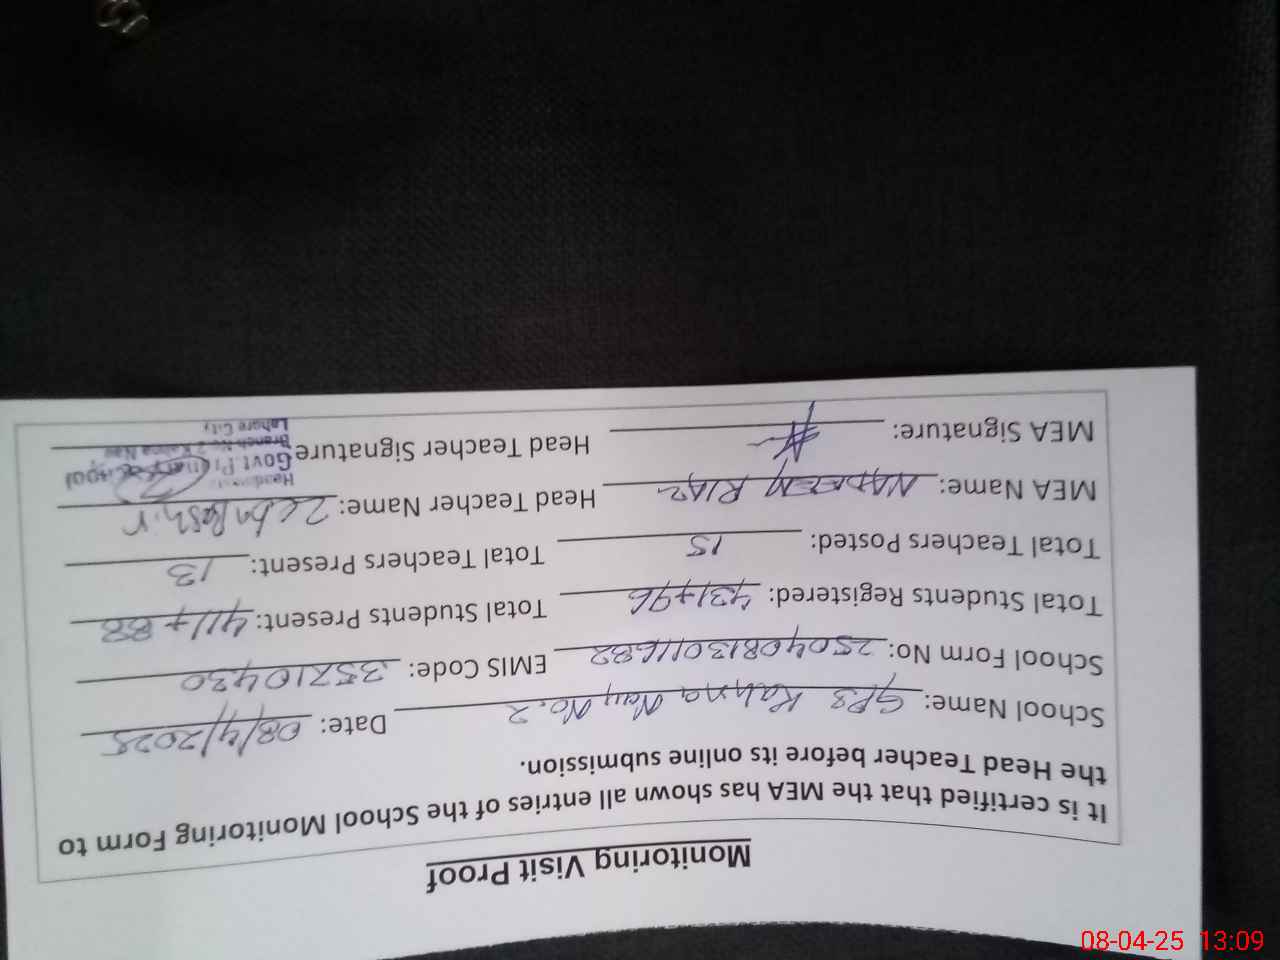 Monitoring Visit Proof
It is certified that the MEA has shown all entries of the School Monitoring Form to
the Head Teacher before its online submission.
School Name: GPS Kahna Nau No.2 Date: 08/4/2025
School Form No: 25040813011682 EMIS Code: 35210430
Total Students Registered: 431+96 Total Students Present: 411+88
Total Teachers Posted: 15 Total Teachers Present: 13
MEA Name: NADEEM RIAZ Head Teacher Name: Zeba Bashir
MEA Signature: Head Teacher Signature
Govt. School
Branch No. 2 Kahna Nau
Lahore City
08-04-25 13:09